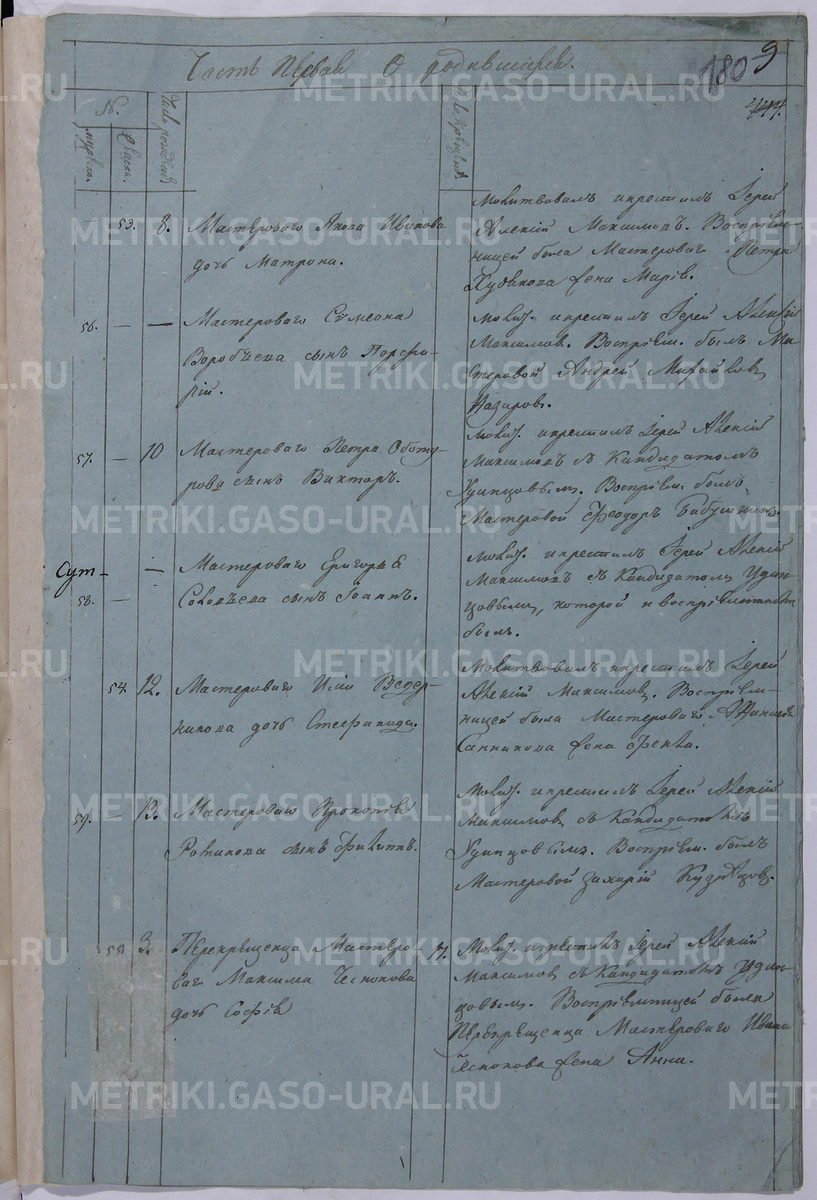 Часть Первая О родившихся.
180 9
447.
№.
мужеска.
женска.
Число рождения
Число крещения
53. 8. Мастероваго Якова Иванова
дочь Матрона.
Молитвовалъ и крестилъ Іерей
Алексій Максимовъ. Воспріем-
ницей была Мастероваго Петра
Худякова жена Марія.
56. — — Мастероваго Сумеона
Воробьева сынъ Порфи-
рій.
Молит. и крестилъ Іерей Алексій
Максимов. Воспріем. былъ Ма-
стеровой Андрей
Назаров.
57. — 10 Мастероваго Петра Оботу-
рова сынъ Викторъ.
Молит. и крестилъ Іерей Алексій
Максимовъ съ Кандидатомъ
Удинцовымъ. Воспріем. былъ
Мастеровой Феодоръ Бабушкинъ.
Сут-
58. — — Мастероваго Григорья
Соловьева сынъ Іоаннъ.
Молит. и крестилъ Іерей Алексій
Максимовъ съ Кандидатомъ Удин-
цовымъ, которой и воспріемником
былъ.
54. 12. Мастероваго Иліи Ведер-
никова дочь Стефанида.
Молитвовалъ и крестилъ Іерей
Алексій Максимов. Воспріем-
ницей была Мастероваго Афанасія
Санникова жена Фекла.
59. — 13. Мастероваго Прокопья
сынъ Филиппъ.
Молит. и крестилъ Іерей Алексій
Максимов съ Кандидатомъ
Удинцовымъ. Воспріем. былъ
Мастеровой Захарій Кузнецов.
55. 3. Перекрещенца Мастеро-
ваго Максима Чеснокова
дочь Софія
17. Молит. и крестилъ Іерей Алексій
Максимов съ Кандидатомъ Удин-
цовым. Воспріемницей была
Перекрещенца Мастероваго Ивана
Чеснокова жена Анна.
METRIKI.GASO-URAL.RU